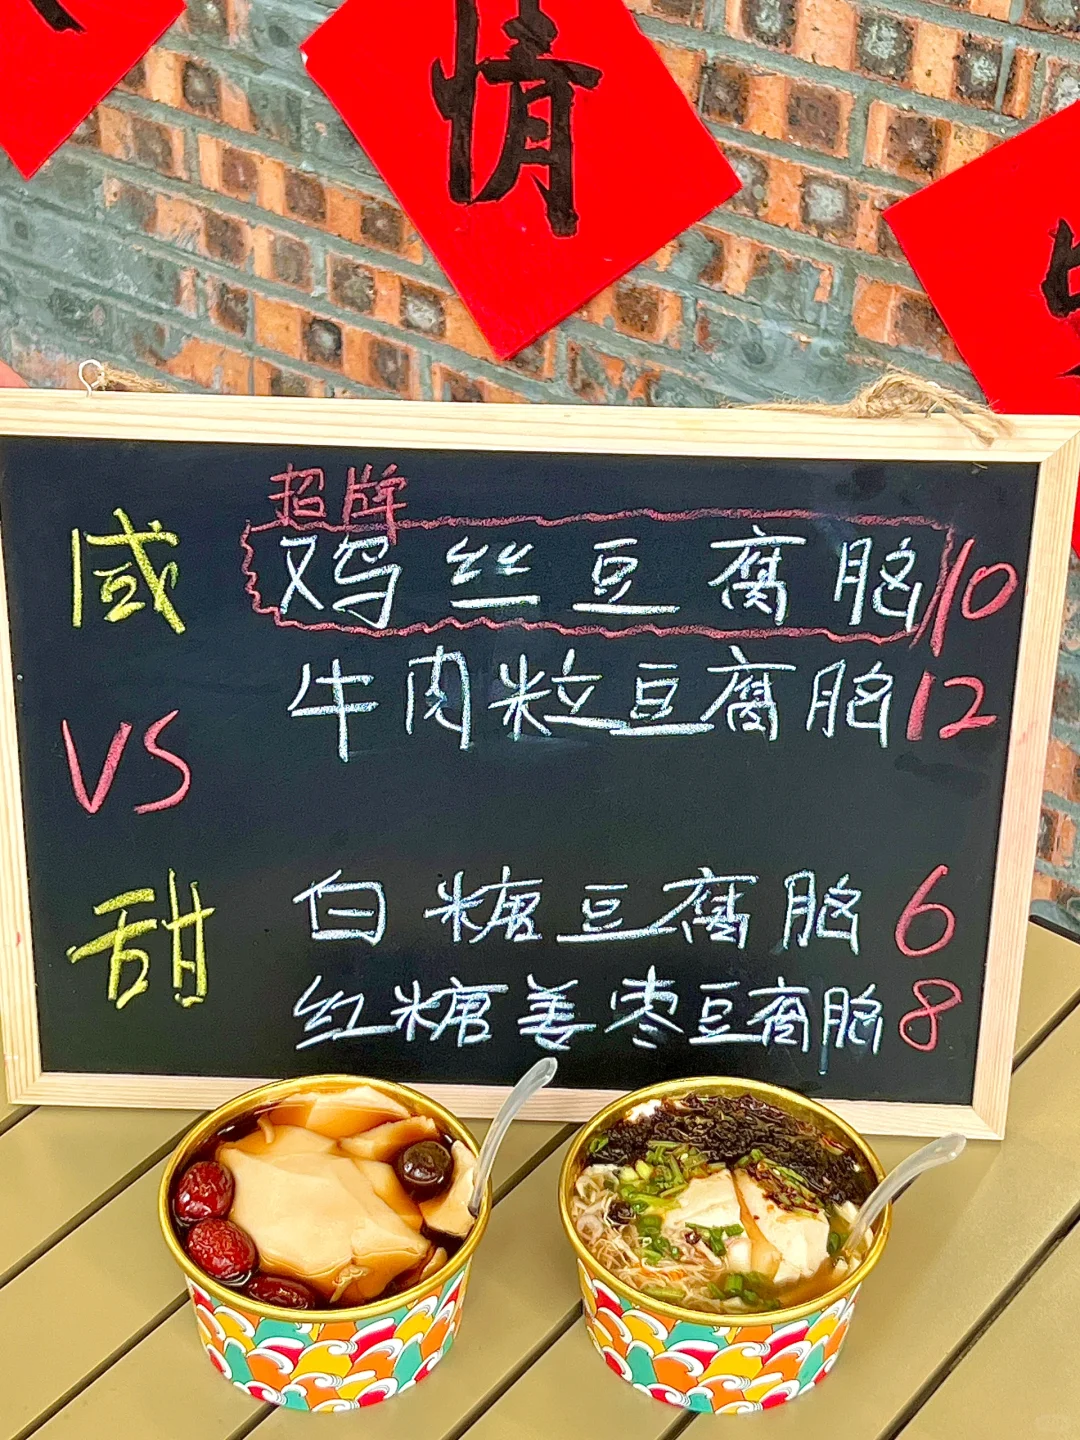 情
招牌
咸
鸡丝豆腐脑 10
牛肉粒豆腐脑 12
VS
甜
白糖豆腐脑 6
红糖姜枣豆腐脑 8